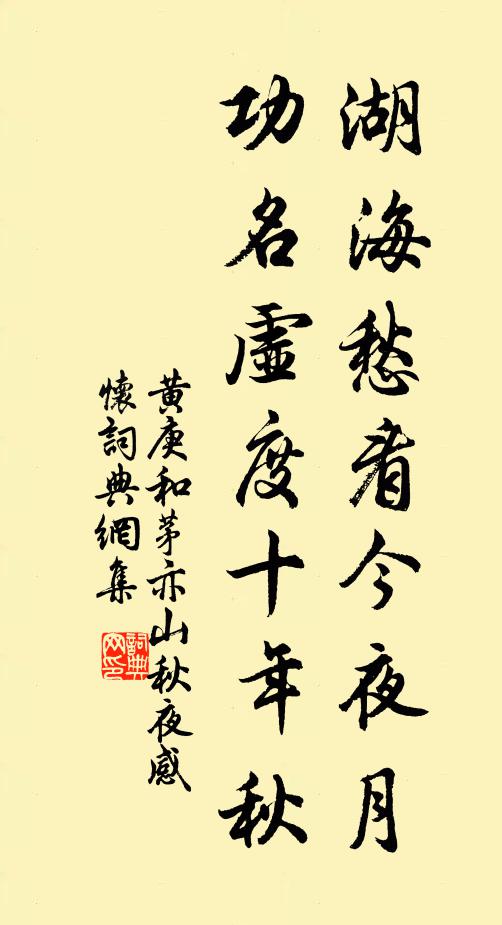 湖海愁看今夜月
功名虛度十年秋
黄庚和茅亦山秋夜感
懷詞典網集
詞典网印